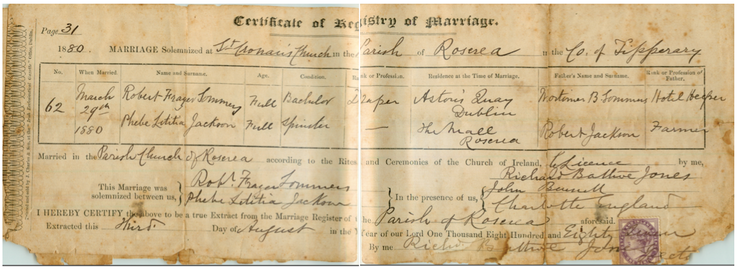 Certificate of Registry of Marriage.
Page 31
1880 MARRIAGE Solemnized at St Cronan's Church in the Parish of Roscrea in the Co. of Tipperary
No. When Married. Name and Surname. Age. Condition. Rank or Profession. Residence at the Time of Marriage. Father's Name and Surname. Rank or Profession of Father.
62 March 29th 1880 Robert Frazer Sommers Full Bachelor Draper Aston's Quay Dublin Mortomer B Sommers Hotel Keeper
Phebe Letitia Jackson Full Spinster — The Mall Roscrea Robert Jackson Farmer
Married in the Parish Church of Roscrea according to the Rites and Ceremonies of the Church of Ireland, by Licence by me,
Richard Jones
This Marriage was solemnized between us, Robt Frazer Sommers
Phebe Letitia Jackson
In the presence of us, John
Charlotte England
I HEREBY CERTIFY the above to be a true Extract from the Marriage Register of the Parish of Roscrea aforesaid.
Extracted this Third Day of August in the Year of our Lord One Thousand Eight Hundred and Eighty
By me Richd